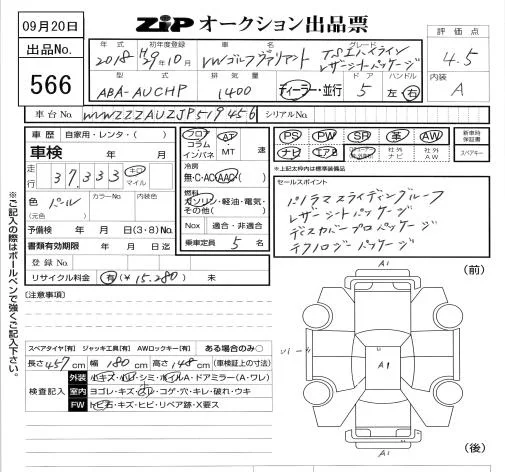 09月20日
出品No.
566
ZiP オークション出品票
評価点
4.5
内装
A
年式 初年度登録 車名 グレード
2018 H29年10月 VWゴルフヴァリアント TSIハイライン
レザーシートパッケージ
型式 排気量 ドア ハンドル
ABA-AUCHP 1400 ディーラー・並行 5 左・右
車台No. WVWZZZAUZJP519456 シリアルNo.
車歴 自家用・レンタ・( )
車検 年 月
走行 37,333 キロ マイル
色 パール カラーNo. 内装色
(元色)
予備検 年 月 日(3・8)No.
書類有効期限 年 月 日迄
登録No.
リサイクル料金 有(¥15,280) 未
フロア
コラム
インパネ
AT
・
MT 速
冷房
無・C・AC・AAC
燃料
ガソリン・軽油・電気・
その他( )
Nox 適合・非適合
乗車定員 5 名
PS PW SR 革 AW
ナビ エアB 社外ナビ 社外AW
新車時保証書
スペアキー
*上記太枠内は標準装備品
セールスポイント
パノラマスライディングルーフ
レザーシートパッケージ
ディスカバープロパッケージ
テクノロジーパッケージ
※ご記入の際はボールペンで強くご記入下さい。
[注意事項]
スペアタイヤ[有] ジャッキ工具[有] AWロックキー[有] ある場合のみ〇
長さ457cm 幅180cm 高さ148cm (車検証上の寸法)
検査記入
外装 小キズ・小凹・シミ・ホイルA・ドアミラー(A・ワレ)
室内 ヨゴレ・キズ・スレ・コゲ・穴・キレ・破れ・ウキ
FW トビ石・キズ・ヒビ・リペア跡・X要ス
(前)
A1
A1
A1
(後)